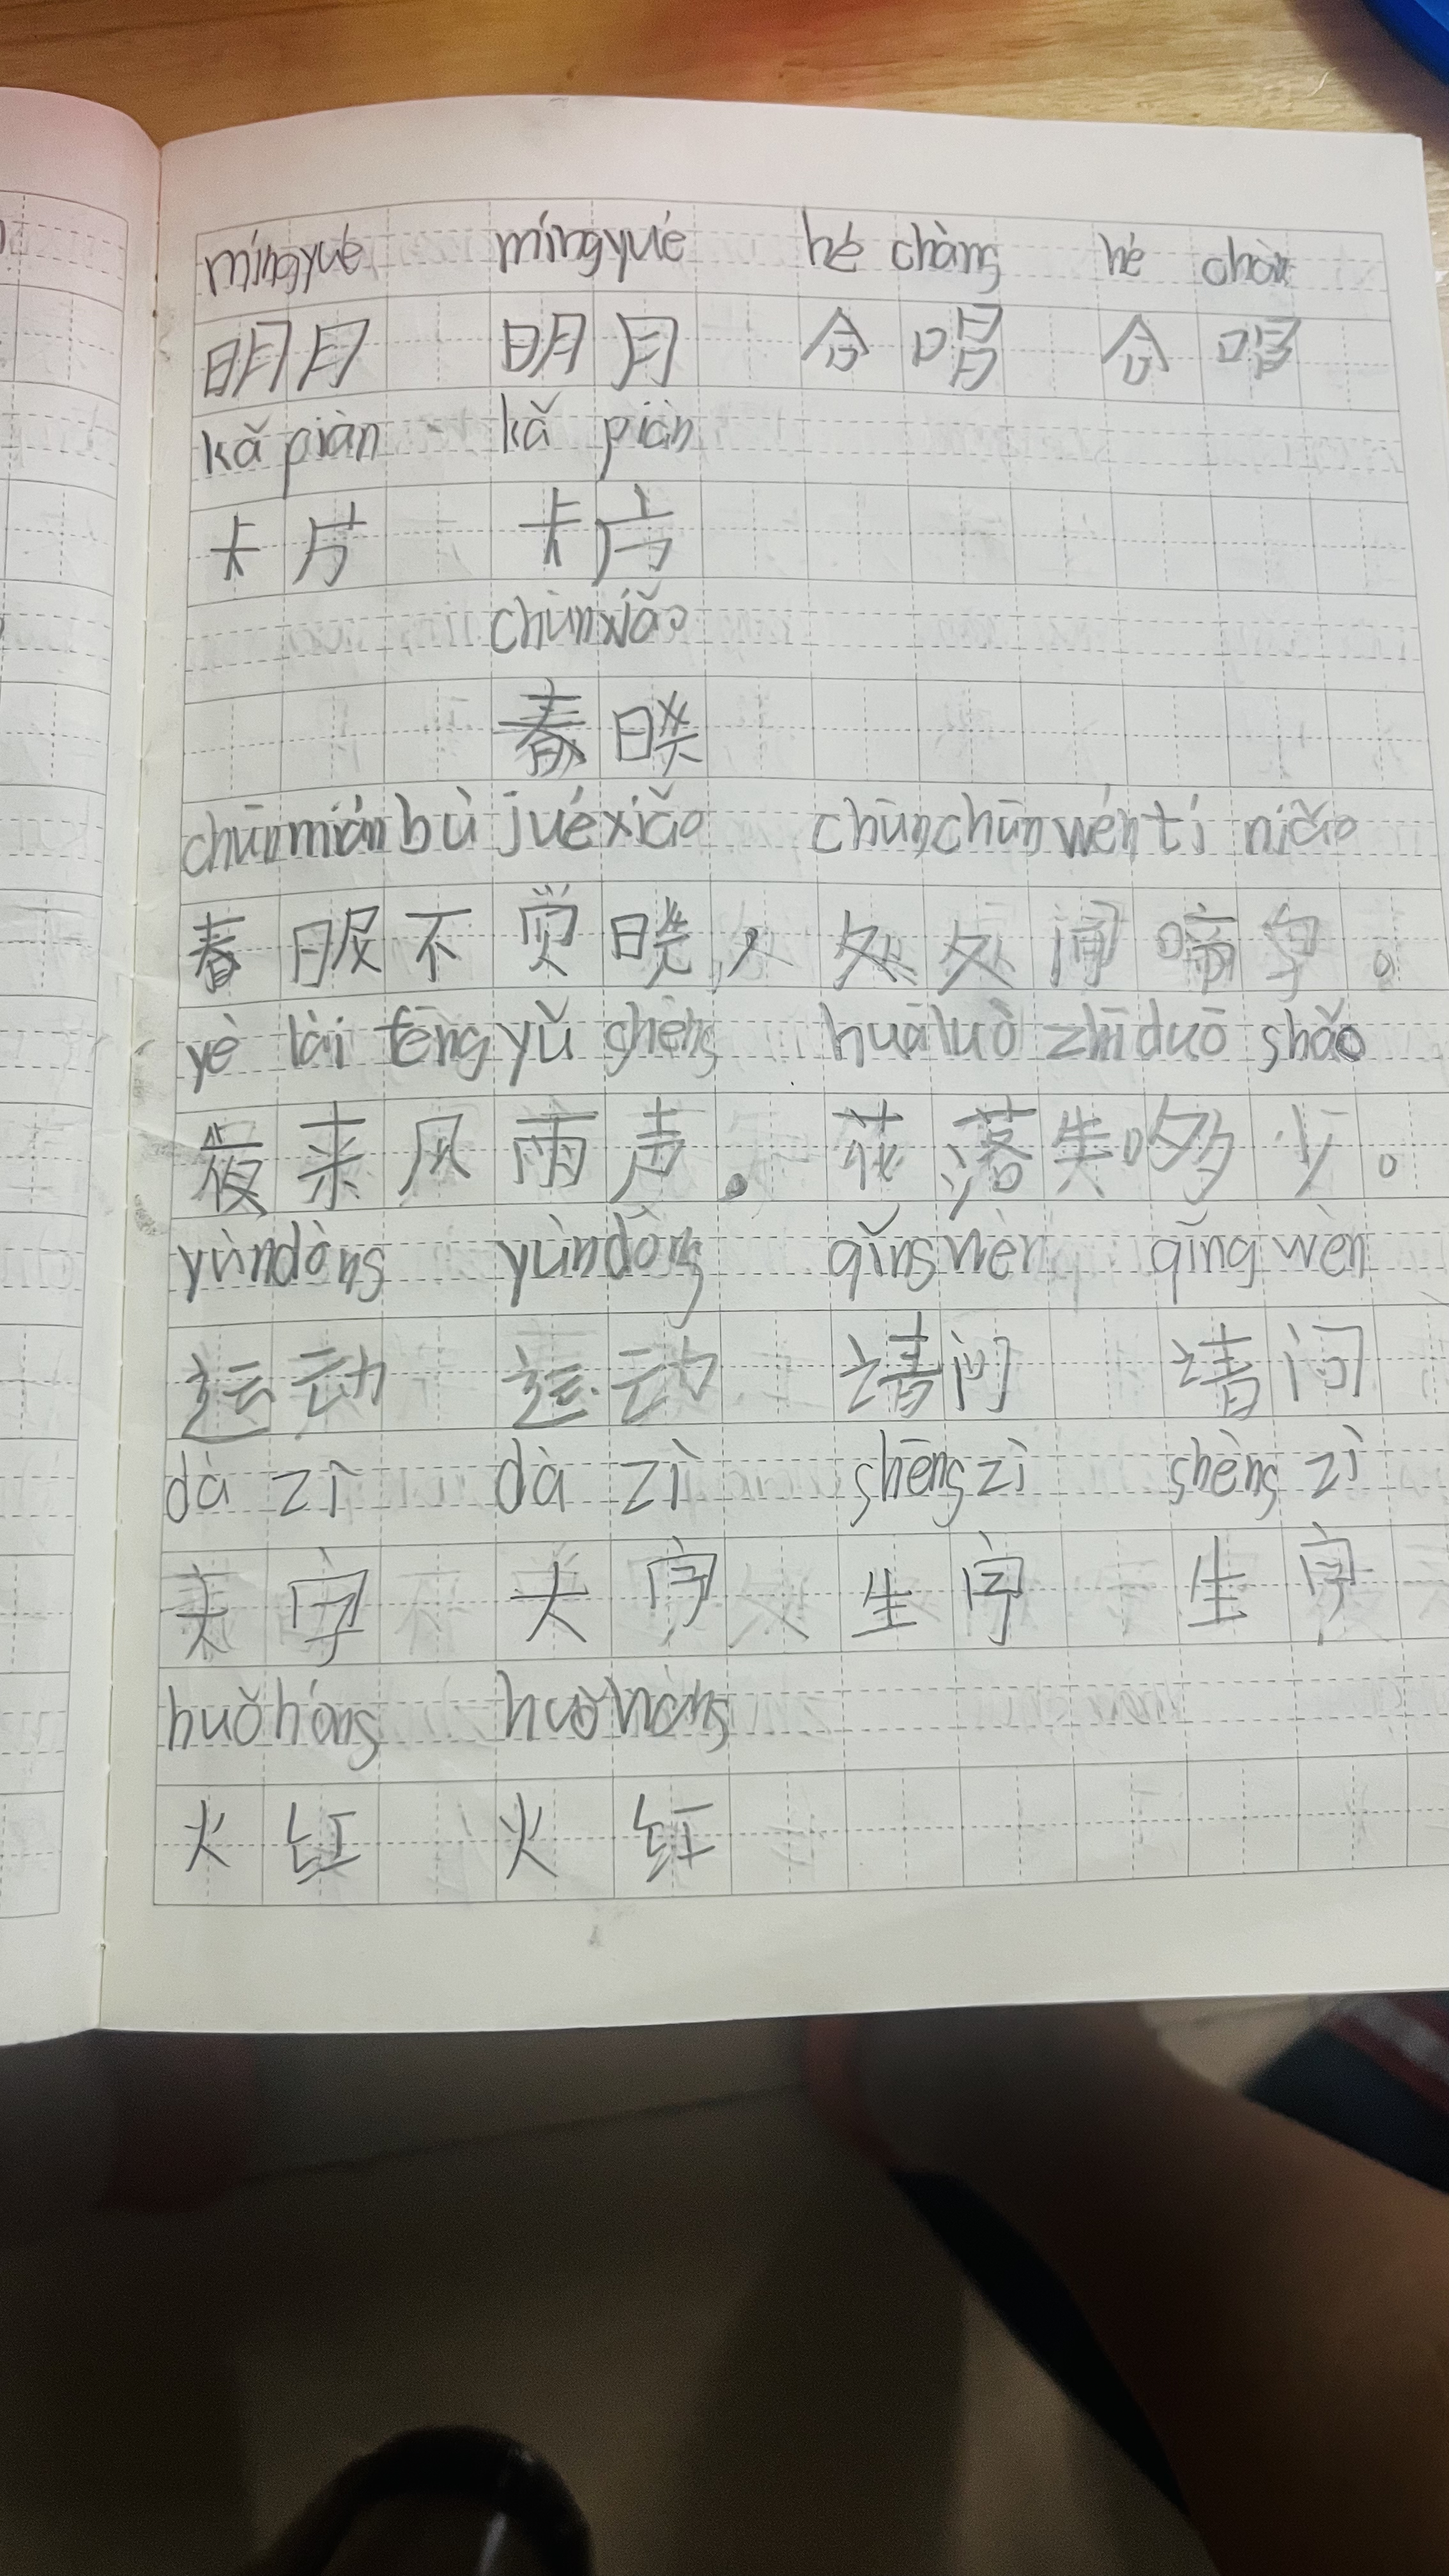 míngyué míngyué hé chàng hé chàn
明月 明月 合唱 合唱
kǎ piàn kǎ piàn
卡片 卡片
chūnxiǎo
春晓
chūnmián bù juéxiǎo chūnchūnwén tí niǎo
春眠不觉晓，处处闻啼鸟。
yè lái fēng yǔ shēng huāluò zhīduō shǎo
夜来风雨声。花落知多少。
yùndòng yùndòng qǐngwèn qǐng wèn
运动 运动 请问 请问
dà zì dà zì shēng zì shèng zì
大字 大字 生字 生字
huǒhóng huǒhóng
火红 火红